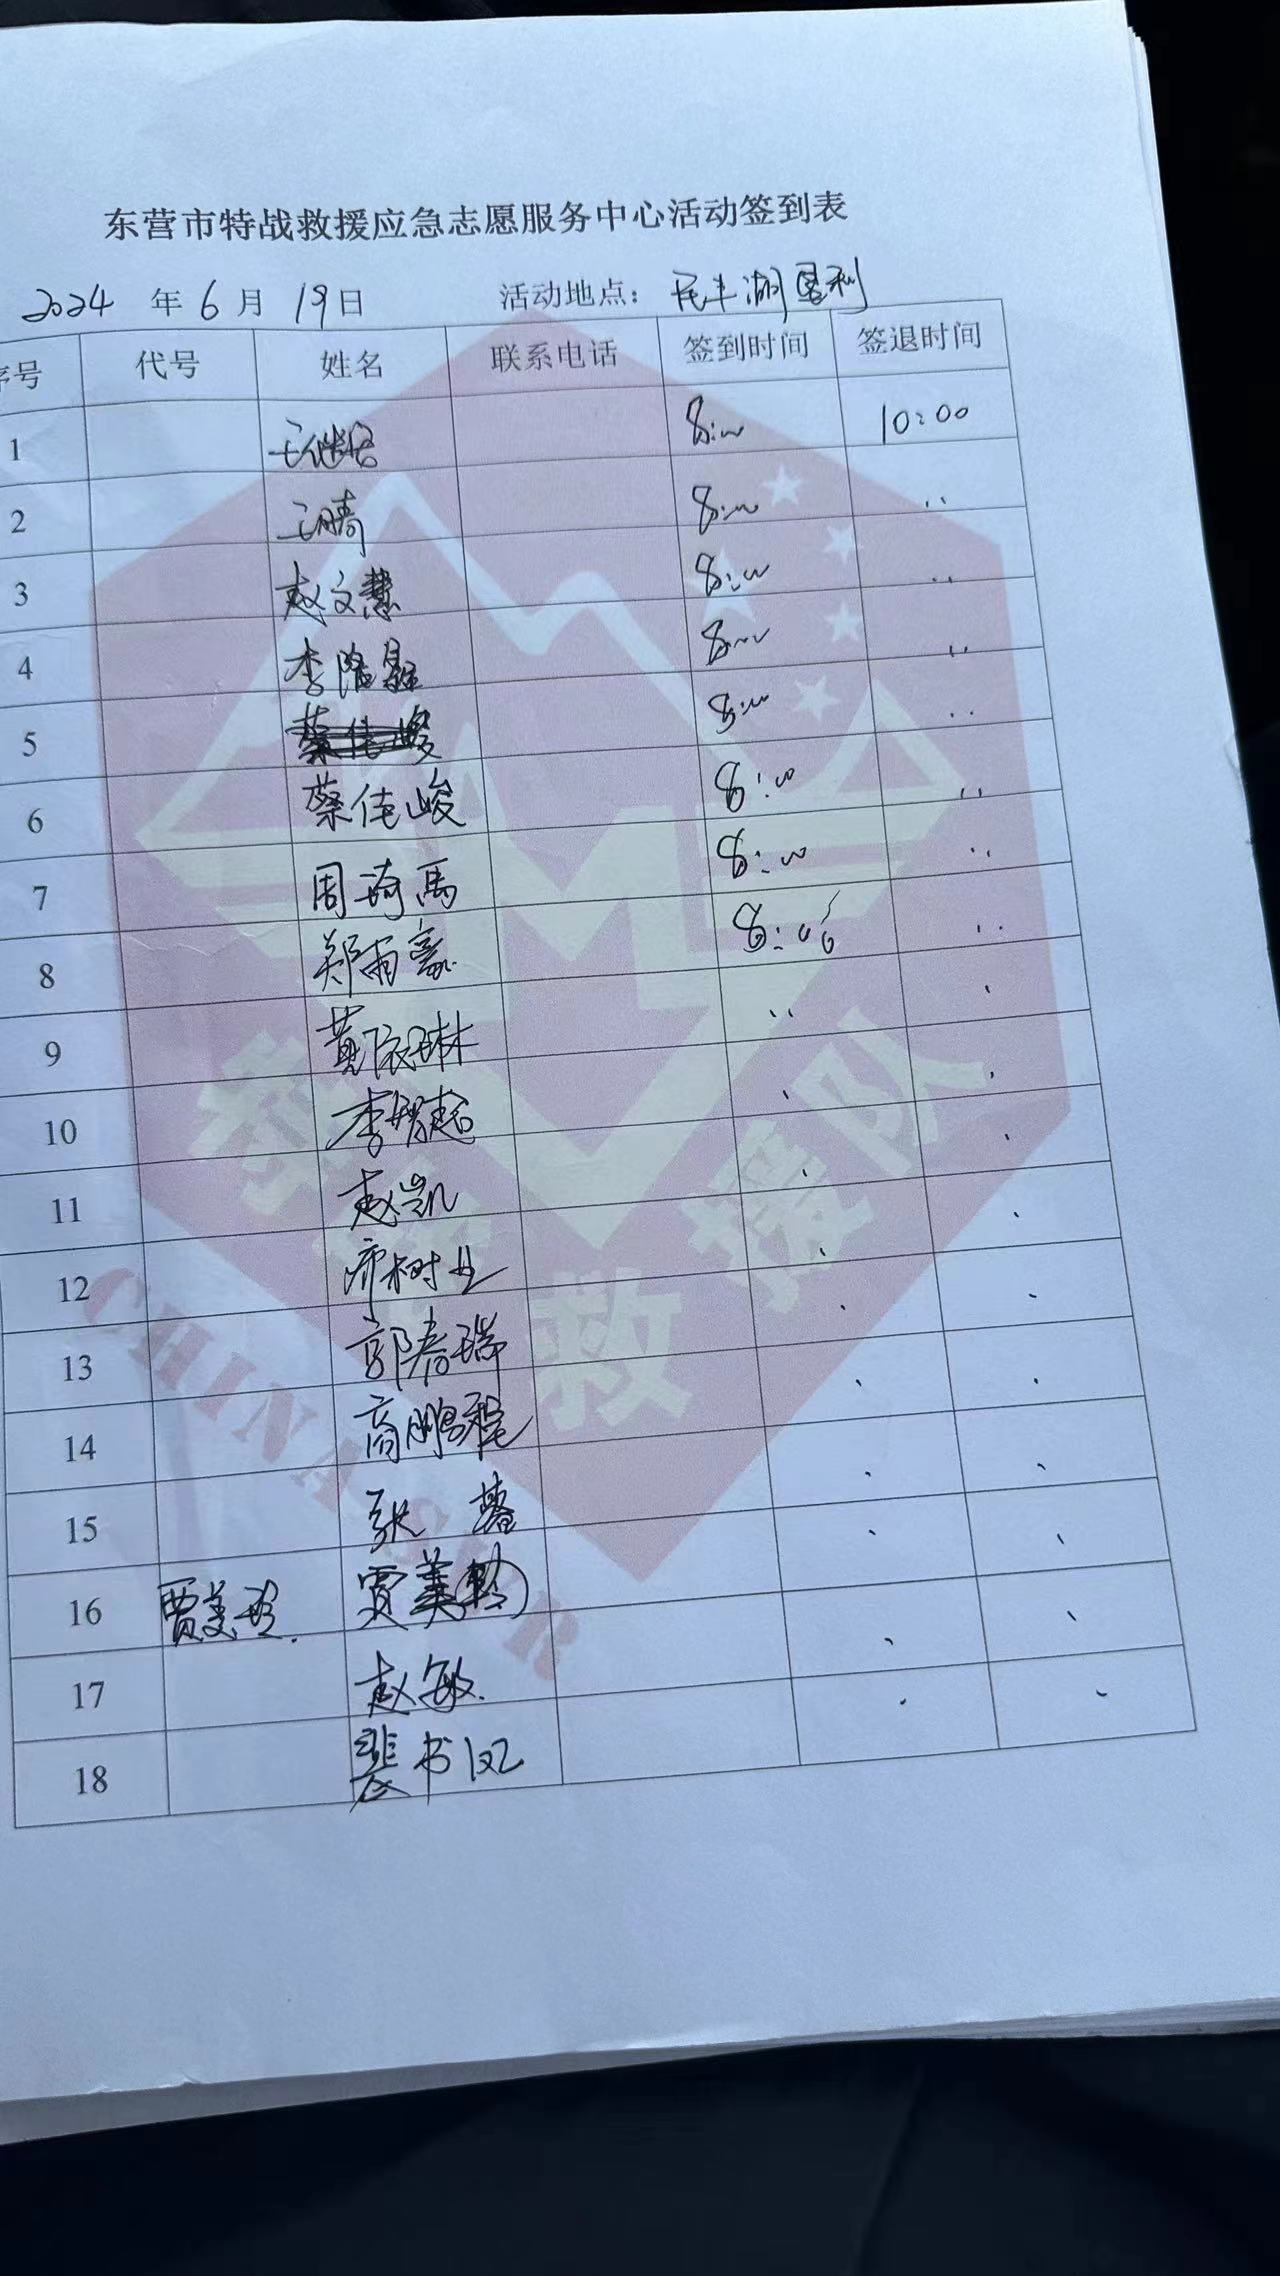 东营市特战救援应急志愿服务中心活动签到表
2024 年 6 月 19 日 活动地点: 民丰湖垦利
序号 代号 姓名 联系电话 签到时间 签退时间
1 8:00 10:00
2 王晴 8:00 ..
3 赵文慧 8:00 ..
4 李隆 8:00 ..
5 蔡佳峻 8:00 ..
6 蔡佳峻 8:00 ..
7 周琦禹 8:00 ..
8 郑雨 8:06 ..
9 黄依琳 ..
10 李智超
11 赵凯
12 树业
13 郭春瑞
14 商鹏程
15 张
16 贾美珍. 贾美
17 赵敏.
18 裴书
CHINA S R
救 援 队